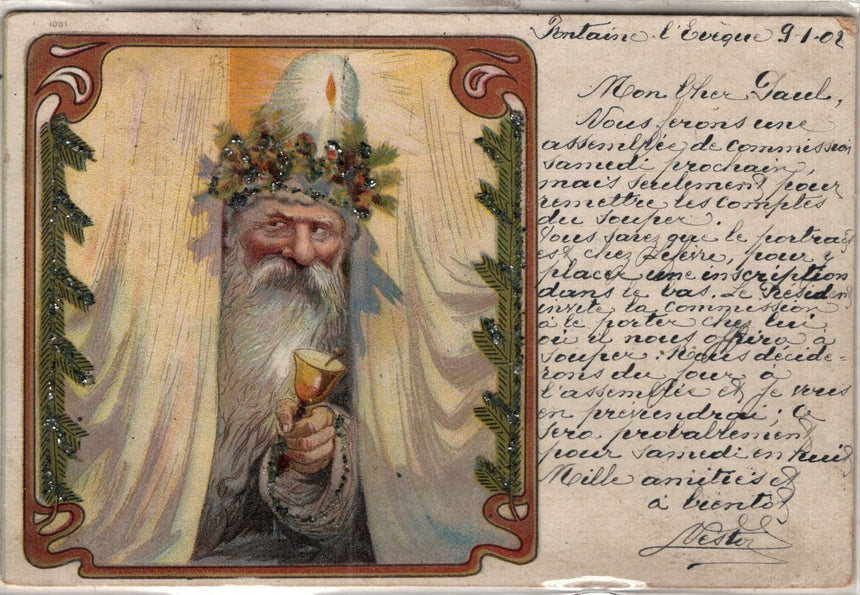 1091
Fontaine-l'Evêque 9-1-02
Mon Cher Paul,
Nous ferons une
assemblée de commission
samedi prochain,
mais seulement pour
remettre les comptes
du souper.
Vous savez que le portrait
est chez Lefèvre, pour y
placer une inscription
dans le bas. Le Président
invite la commission
à le porter chez lui
où il nous offrira à
souper : Nous décide-
rons du jour à
l'assemblée et je vous
en préviendrai; Ce
sera probablement
pour samedi en huit
Mille amitiés et
à bientôt
Nestor